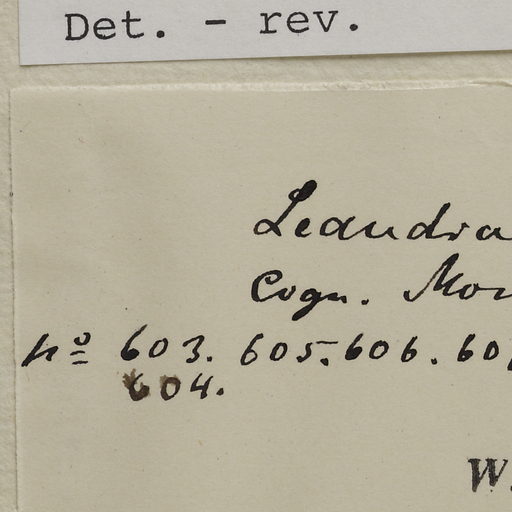 Det. - rev.
Leandra
Cogn. Mon
nº 603. 605. 606. 60
604.
W.